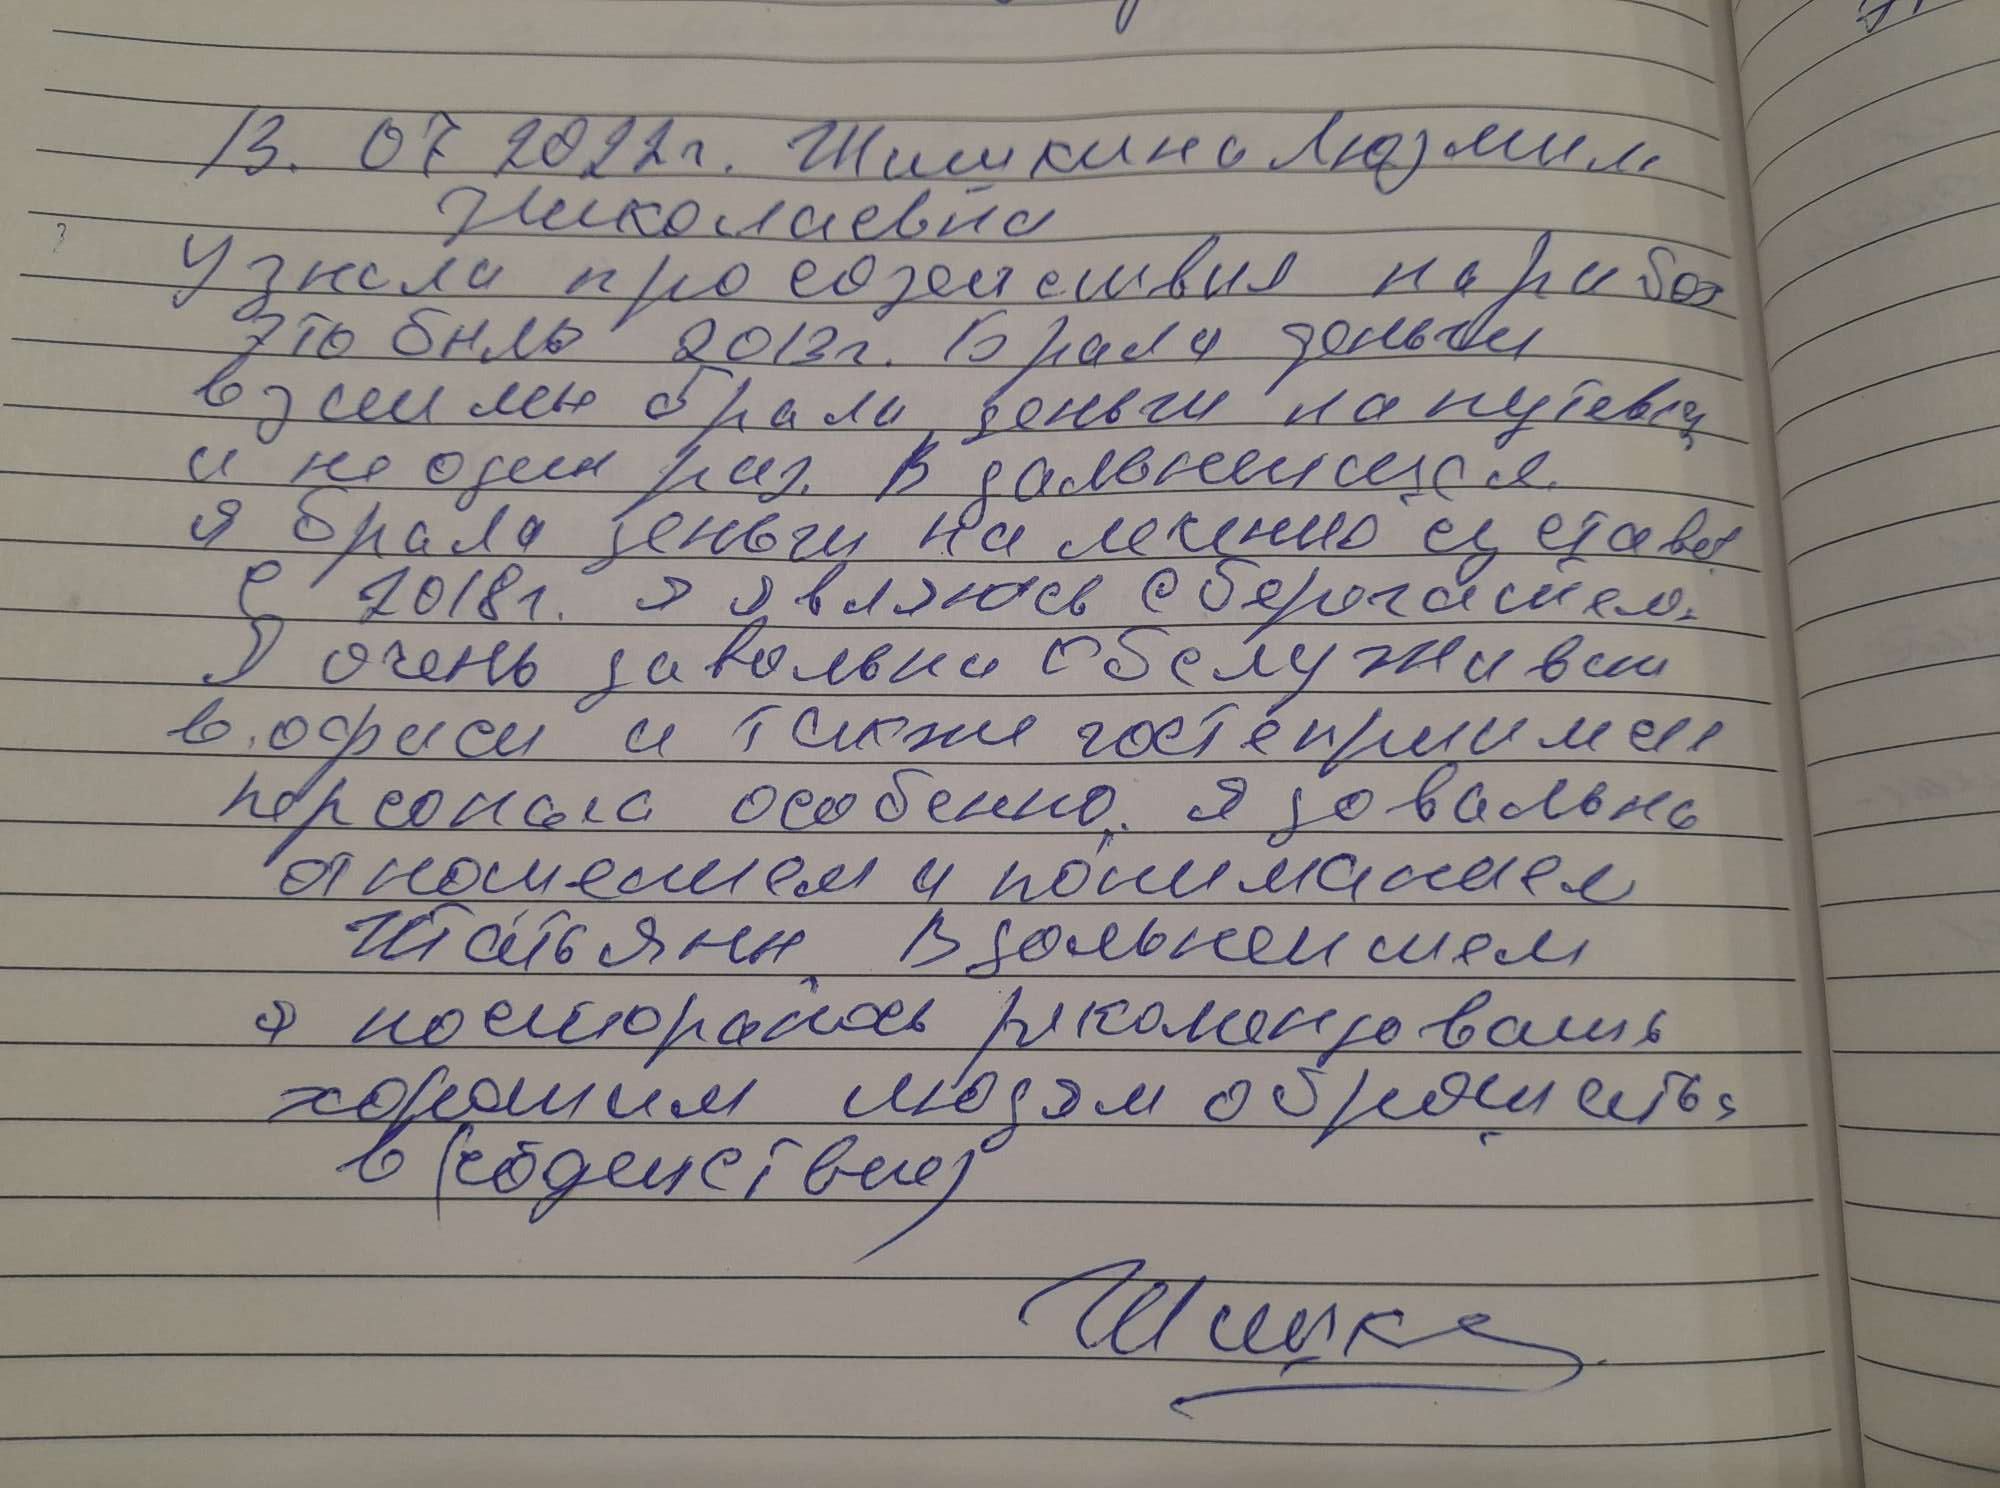 13. 07 2022г. Шишкина Людмила
Николаевна
Узнала про содействия на работ
это было 2013г. Брала деньги
взаимы брала деньги на путевку
и не один раз. В дальнейщея
я брала деньги на лекению суставов
С 2018г. я являюсь сберегателем.
Я очень давольна обслуживан
в офиси и также гостеприимен
персонала особенно. я довальна
отношением и пониманием
Татьяны. В дольнеишем
я посторапюсь рекомендовать
хорошим людям обратиться
в (содействие)
Шишка